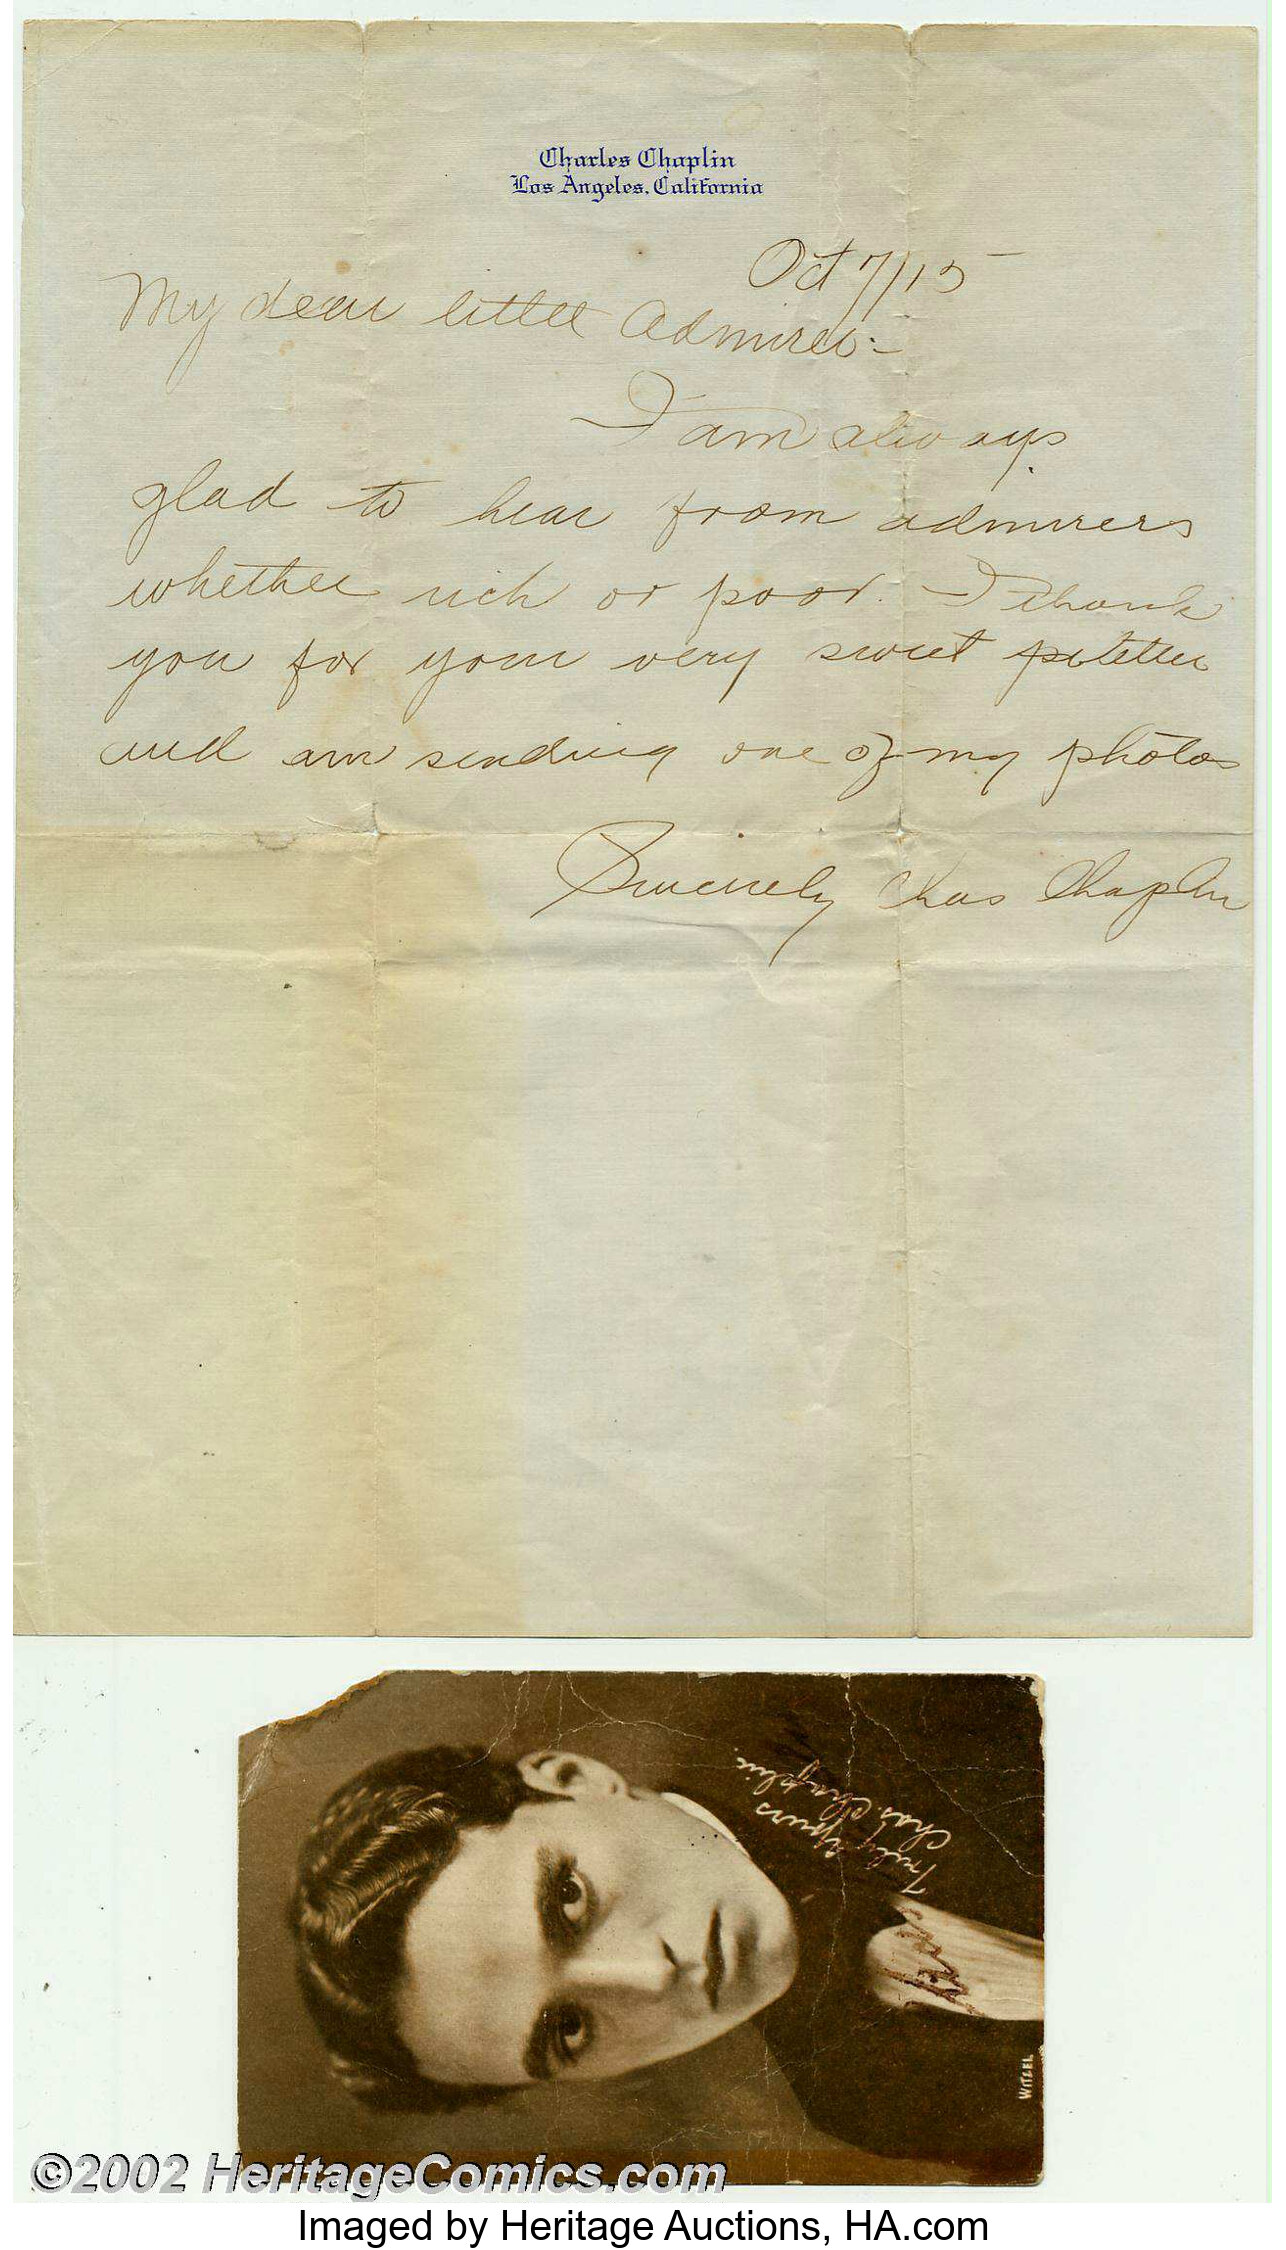 Charles Chaplin
Los Angeles, California
Oct 7/15
My dear little Admirer:-
I am always
glad to hear from admirers
whether rich or poor. I thank
you for your very sweet letter
and am sending one of my photos
Sincerely Chas Chaplin
Truly Yours
Chas. Chaplin.
WITZEL
©2002 HeritageComics.com
Imaged by Heritage Auctions, HA.com